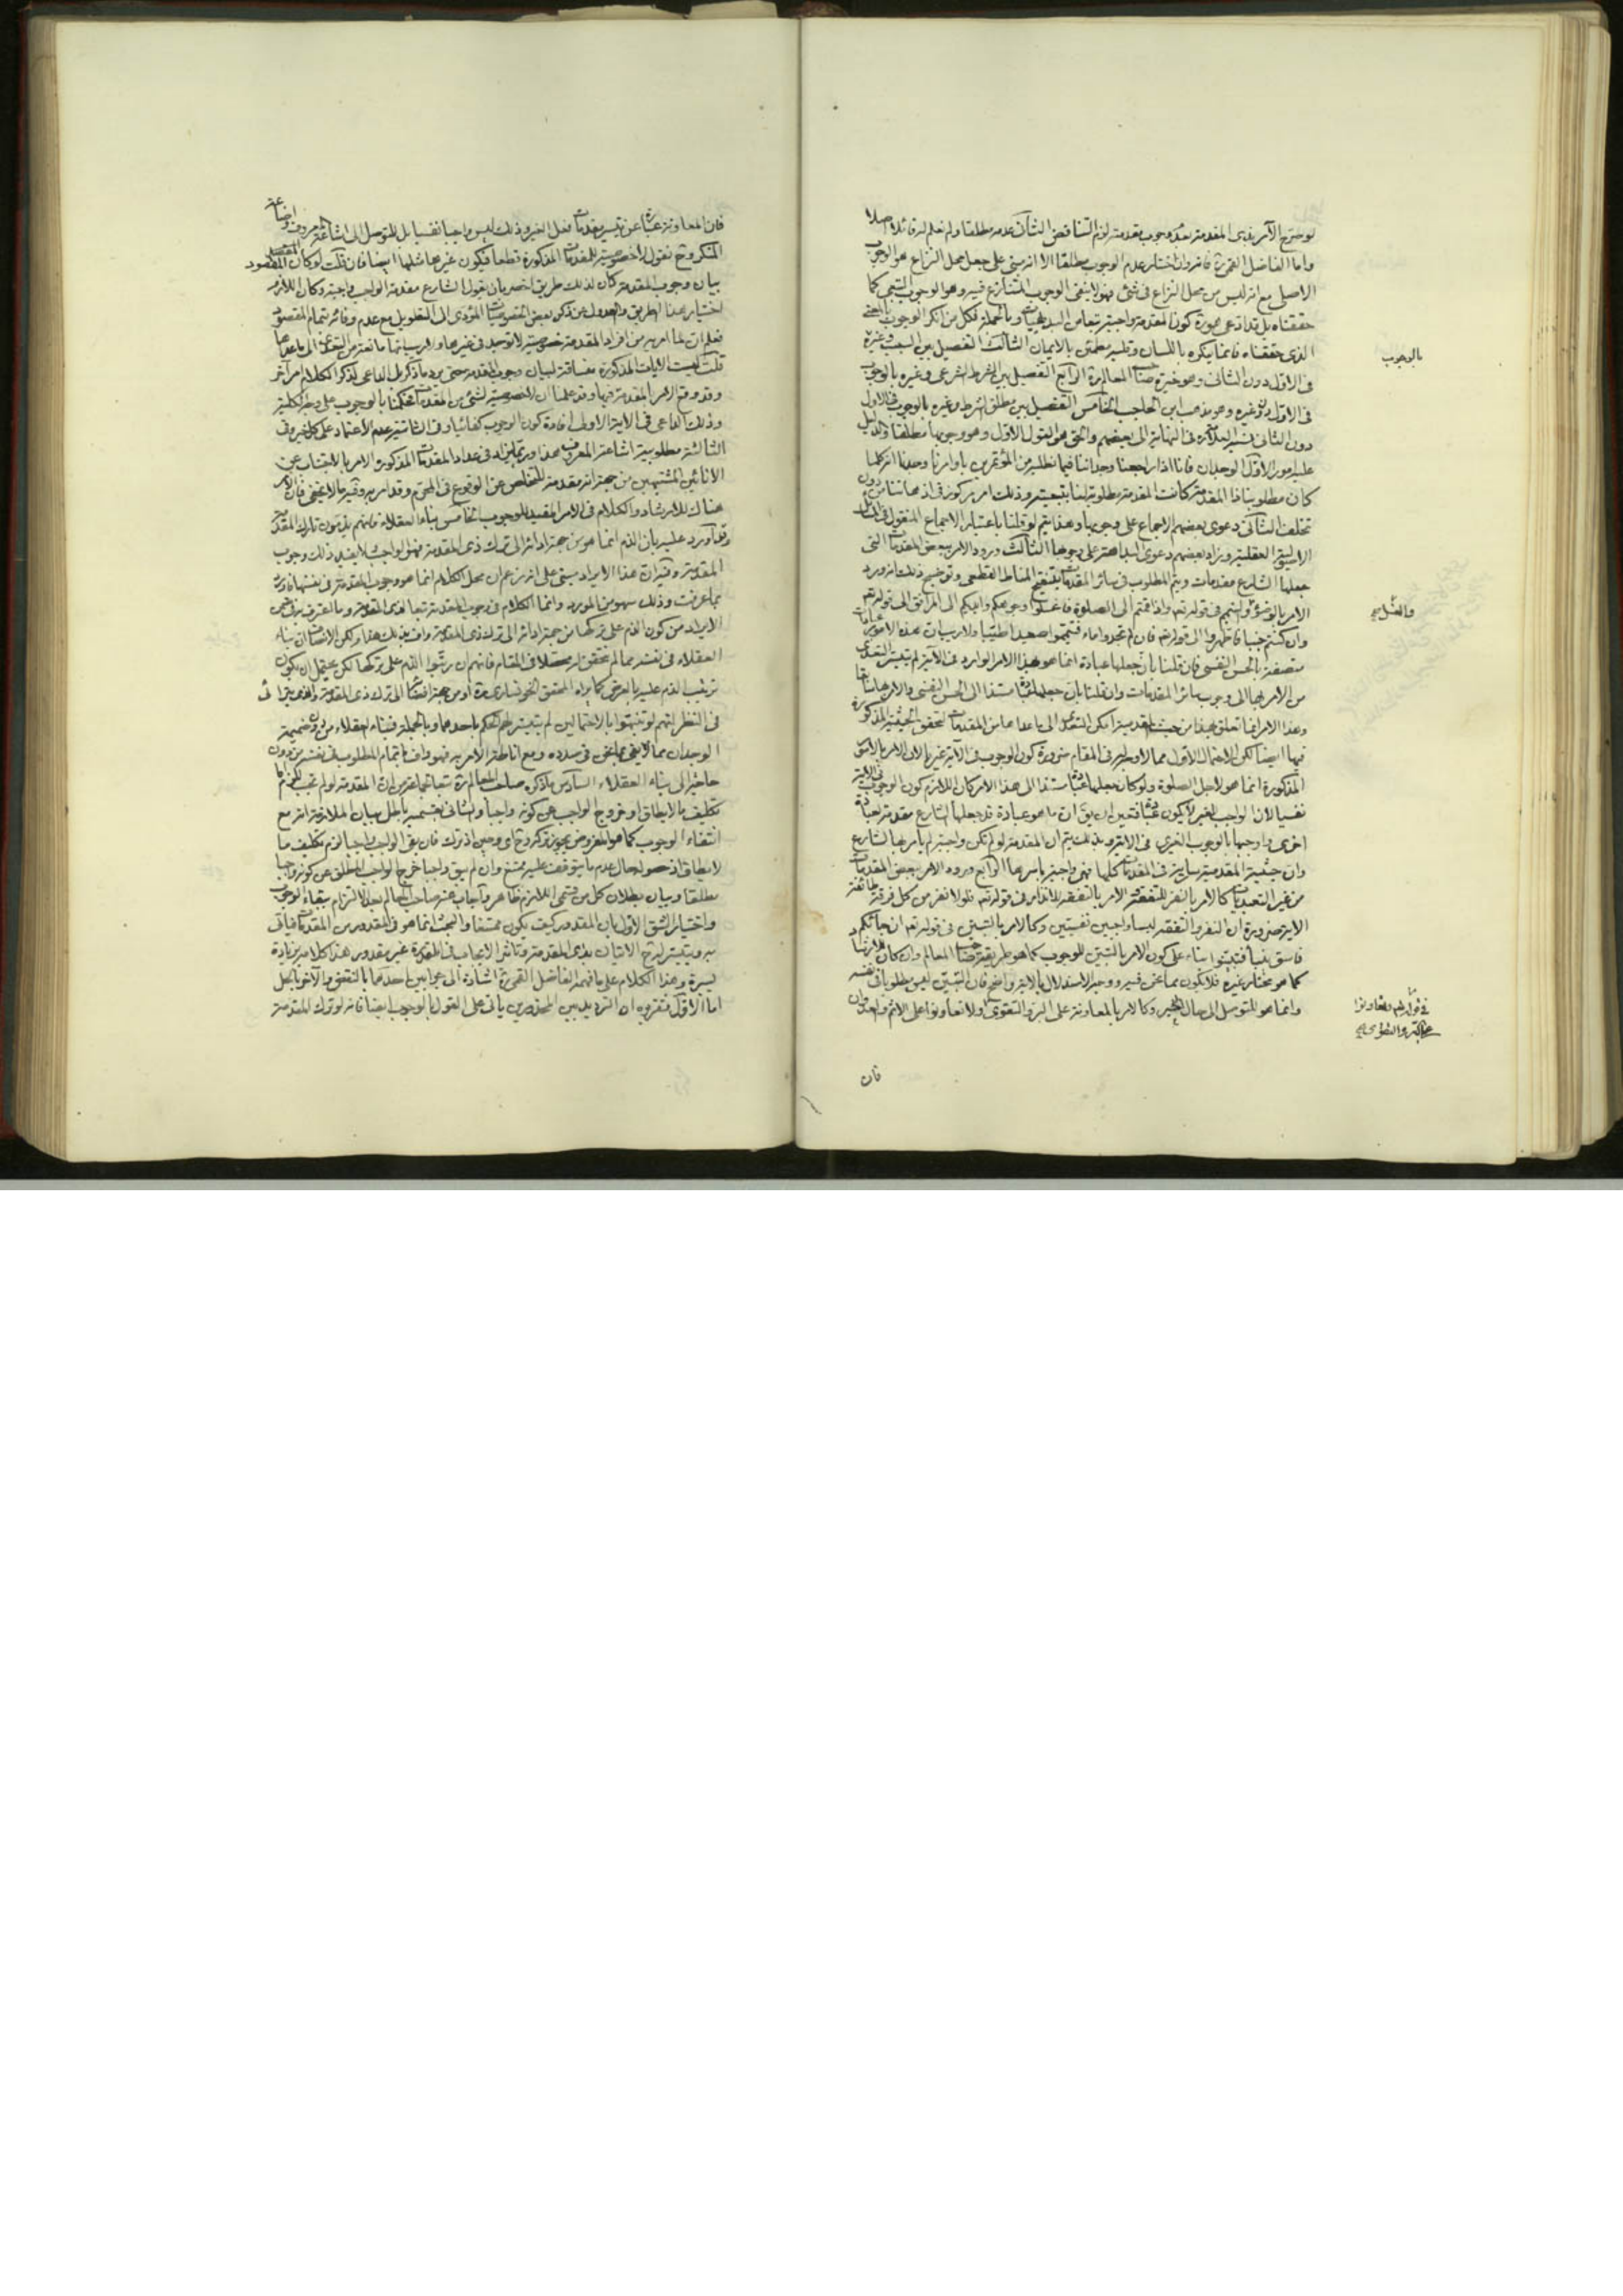 لو صرح الآمر بذى المقدمة بعدم وجوب مقدمته لزم التناقض الثانى عدمه مطلقا ولم نعلم له قائلا اصلا
واما الفاضل القمى ره فانه وان اختار عدم الوجوب مطلقا الا انه مبنى على جعل محل النزاع هو الوجوب
الاصلى مع انه ليس من محل النزاع فى شئ فهو لا ينفى الوجوب المتنازع فيه وهو الوجوب التبعى كما
حققناه بل يدعى كون المقدمة واجبة تبعا من البديهيات وبالجملة فكل من انكر الوجوب بالمعنى
الذى حققناه فانما ينكره باللسان وقلبه مطمئن بالايمان الثالث التفصيل بين السبب وغيره
بالوجوب
فى الاول دون الثانى وهو خيرة صاحب المعالم ره الرابع التفصيل بين الشرط الشرعى وغيره بالوجوب
فى الاول دون غيره وهو مذهب ابن الحاجب الخامس التفصيل بين مطلق الشرط وغيره بالوجوب فى الاول
دون الثانى نسبه العلامة فى النهاية الى بعضهم والحق هو القول الاول وهو وجوبها مطلقا والدليل
عليه امور الاول الوجدان فانا اذا راجعنا وجداننا فيما نطلبه من المؤتمرين باوامرنا وجدنا انه كلما
كان مطلوبنا ذا المقدمة كانت المقدمة مطلوبة لنا بتبعيته وذلك امر مركوز فى اذهاننا من دون
تخلف الثانى دعوى بعضهم الاجماع على وجوبها وهذا يتم لو قلنا باعتبار الاجماع المنقول فى المسائل
الاصولية العقلية ويزاد بعضهم دعوى البداهة على وجوبها الثالث ورود الامر ببعض المقدمات التى
جعلها الشارع مقدمات ويتم المطلوب فى سائر المقدمات بتنقيح المناط القطعى وتوضيح ذلك انه ورد
الامر بالوضوء والتيمم فى قوله تعالى واذا قمتم الى الصلوة فاغسلوا وجوهكم وايديكم الى المرافق الى قوله تعالى
والغسل صح
وان كنتم جنبا فاطهروا الى قوله تعالى فان لم تجدوا ماء فتيمموا صعيدا طيبا ولا ريب ان هذه الامور عبادات
متصفة بالحسن النفسى فان قلنا بان جعلها عبادة انما هو بهذا الامر الوارد فى الآية لم يتيسر التعدى
من الامر بها الى وجوب سائر المقدمات وان قلنا بان جعلها عبادة مستندا الى الحسن النفسى والامر بها سابقا
وهذا الامر انما تعلق بها من حيث المقدمية امكن التعدى الى ما عداها من المقدمات لتحقق الحيثية المذكورة
فيها ايضا لكن الاحتمال الاول مما لا وجه له فى المقام ضرورة كون الوجوب فى الآية غيريا لان الامر بالامور
المذكورة انما هو لاجل الصلوة ولو كان جعلها عبادة مستندا الى هذا الامر كان اللازم كون الوجوب فى الآية
نفسيا لان الواجب الغيرى لا يكون عبادة فتعين ان يق ان ما هو عبادة قد جعلها الشارع مقدمة لعبادة
اخرى واوجبها بالوجوب الغيرى فى الآية وبذلك يتم ان المقدمة لو لم تكن واجبة لم يأمر بها الشارع
وان حيثية المقدمية سارية فى المقدمات كلها فهى واجبة باسرها الرابع ورود الامر ببعض المقدمات
من غير التعبديات كالامر بالنفر للتفقه والامر بالتفقه للانذار فى قوله تعالى فلولا نفر من كل فرقة طائفة
الآية ضرورة ان النفر والتفقه ليسا واجبين نفسيين وكالامر بالتبين فى قوله تعالى ان جائكم
فاسق بنبأ فتبينوا بناء على كون الامر بالتبين للوجوب كما هو طريقة صاحب المعالم وان كان للارشاد
كما هو مختار غيره فلا يكون مما نحن فيه ووجه الاستدلال بالآية واضح فان التبين ليس مطلوبا فى نفسه
وانما هو للتوسل الى حال الخبر وكالامر بالمعاونة على البر والتقوى ولا تعاونوا على الاثم والعدوان
فى قوله تعالى وتعاونوا
على البر والتقوى صح
فان
فان المعاونة عبارة عن تيسير مقدمات فعل الغير وذلك ليس واجبا نفسيا بل للتوصل الى اشاعة المعروف واضاعة
المنكر وح نقول لا خصوصية للمقدمات المذكورة قطعا فيكون غيرها مثلها ايضا فان قلت لو كان المقصود
بيان وجوب المقدمة كان لذلك طريق اخصر بان يقول الشارع مقدمة الواجب واجبة وكان اللازم
اختيار هذا الطريق والعدول عن ذكر بعض الخصوصيات المؤدى الى التطويل مع عدم وفائه بتمام المقصود
فعلم ان لما امر به من افراد المقدمة خصوصية لا توجد فى غيرها ولا ريب انها مانعة من التعدى الى ما عداها
قلت ليست الآيات المذكورة مساقة لبيان وجوب المقدمة حتى يرد ما ذكر بل الداعى لذكر الكلام امر آخر
وقد وقع الامر بالمقدمة فيها وقد علمنا ان لا خصوصية لشئ من المقدمات فحكمنا بالوجوب على وجه الكلية
وذلك الداعى فى الآية الاولى افادة كون الوجوب كفائيا وفى الثانية عدم الاعتماد على كل خبر وفى
الثالثة مطلوبية اشاعة المعروف هذا وربما يزاد فى عداد المقدمات المذكورة الامر بالاجتناب عن
الانائين المشتبهين من جهة انه مقدمة للتخلص عن الوقوع فى المحرم وقد امر به وفيه ما لا يخفى فان الامر
هناك للارشاد والكلام فى الامر المفيد للوجوب الخامس بناء العقلاء فانهم يذمون تارك المقدمة
وقد اورد عليه بان الذم انما هو من جهة ادائه الى ترك ذى المقدمة فهو الواجب فلا يفيد ذلك وجوب
المقدمة وفيه ان هذا الايراد مبنى على انه زعم ان محل الكلام انما هو وجوب المقدمة فى نفسها فاورد
بما عرفت وذلك سهو من المورد وانما الكلام فى وجوب المقدمة تبعا لذى المقدمة وما اعترف به فى ضمن
الايراد من كون الذم على تركها من جهة ادائه الى ترك ذى المقدمة واف بذلك هذا ولكن الانصاف ان بناء
العقلاء فى نفسه مما لم يتحقق له محصلا فى المقام فانهم ان رتبوا الذم على تركها لكن يحتمل ان يكون
ترتيب الذم عليه بالعرض كما يراه المحقق الخونسارى ره او من جهة افضائها الى ترك ذى المقدمة والذى يتراءى
فى النظر انهم لو تنبهوا بالاحتمالين لم يتيسر لهم الحكم باحدهما وبالجملة فبناء العقلاء من دون ضميمة
الوجدان مما لا يفى بما نحن فى صدده ومع اناطة الامر به فهو واف باتمام المطلوب فى نفسه من دون
حاجة الى بناء العقلاء السادس ما ذكره صاحب المعالم ره تبعا لجماعة من ان المقدمة لو لم تجب للزم اما
تكليف ما لا يطاق او خروج الواجب عن كونه واجبا والثانى بقسميه باطل بيان الملازمة انه مع
انتفاء الوجوب كما هو المفروض يجوز تركه وح اذا ترك فان بقى الواجب واجبا لزم تكليف ما
لا يطاق اذ حصوله حال عدم ما يتوقف عليه ممتنع وان لم يبق واجبا خرج الواجب المطلق عن كونه واجبا
مطلقا وبيان بطلان كل من قسمى اللازم ظاهر واجاب عنه صاحب المعالم بعد الالتزام ببقاء الوجوب
واختيار الشق الاول بان المقدور كيف يكون ممتنعا والبحث انما هو فى المقدور من المقدمات فيأتى
به ويتيسر له ح الاتيان بذى المقدمة وتأثير الايجاب فى القدرة غير مقدور هذا كلامه بزيادة
يسيرة وهذا الكلام على ما فهمه الفاضل القمى ره اشارة الى جوابين احدهما بالنقض والآخر بالحل
اما الاول فتقريره ان الترديد بين المحذورين يأتى على القول بالوجوب ايضا فانه لو ترك المقدمة